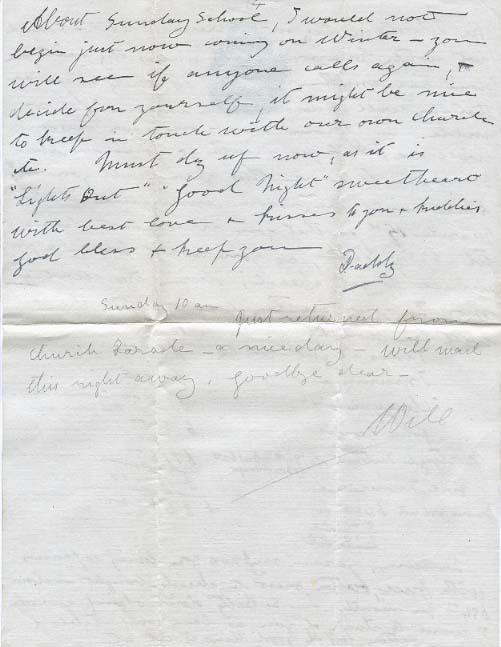 4
About Sunday School, I would not
begin just now coming on Winter - you
will see if anyone calls again, &
decide for yourself, it might be nice
to keep in touch with our own church
etc. Must dry up now, as it is
"Lights Out" "Good Night" sweetheart
with best love & kisses to you & kiddies
God bless & keep you
Daddy
Sunday 10 am
Just returned from
Church Parade - a nice day - will mail
this right away, goodbye dear -
Will